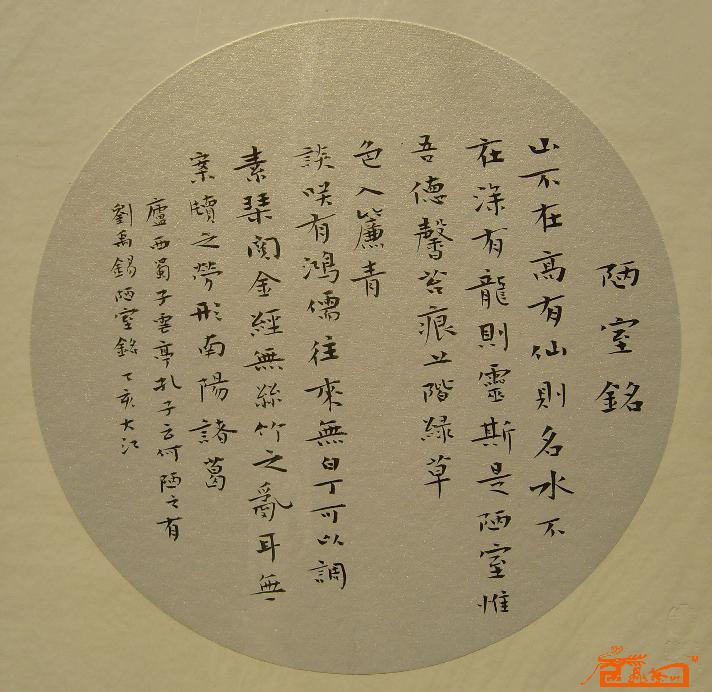 陋室銘
山不在高有仙則名水不
在深有龍則靈斯是陋室惟
吾德馨苔痕上階緑草
色入簾青
談咲有鴻儒往來無白丁可以調
素琹閲金經無絲竹之亂耳無
案牘之勞形南陽諸葛
廬西蜀子雲亭孔子云何陋之有
劉禹錫陋室銘丁亥大江